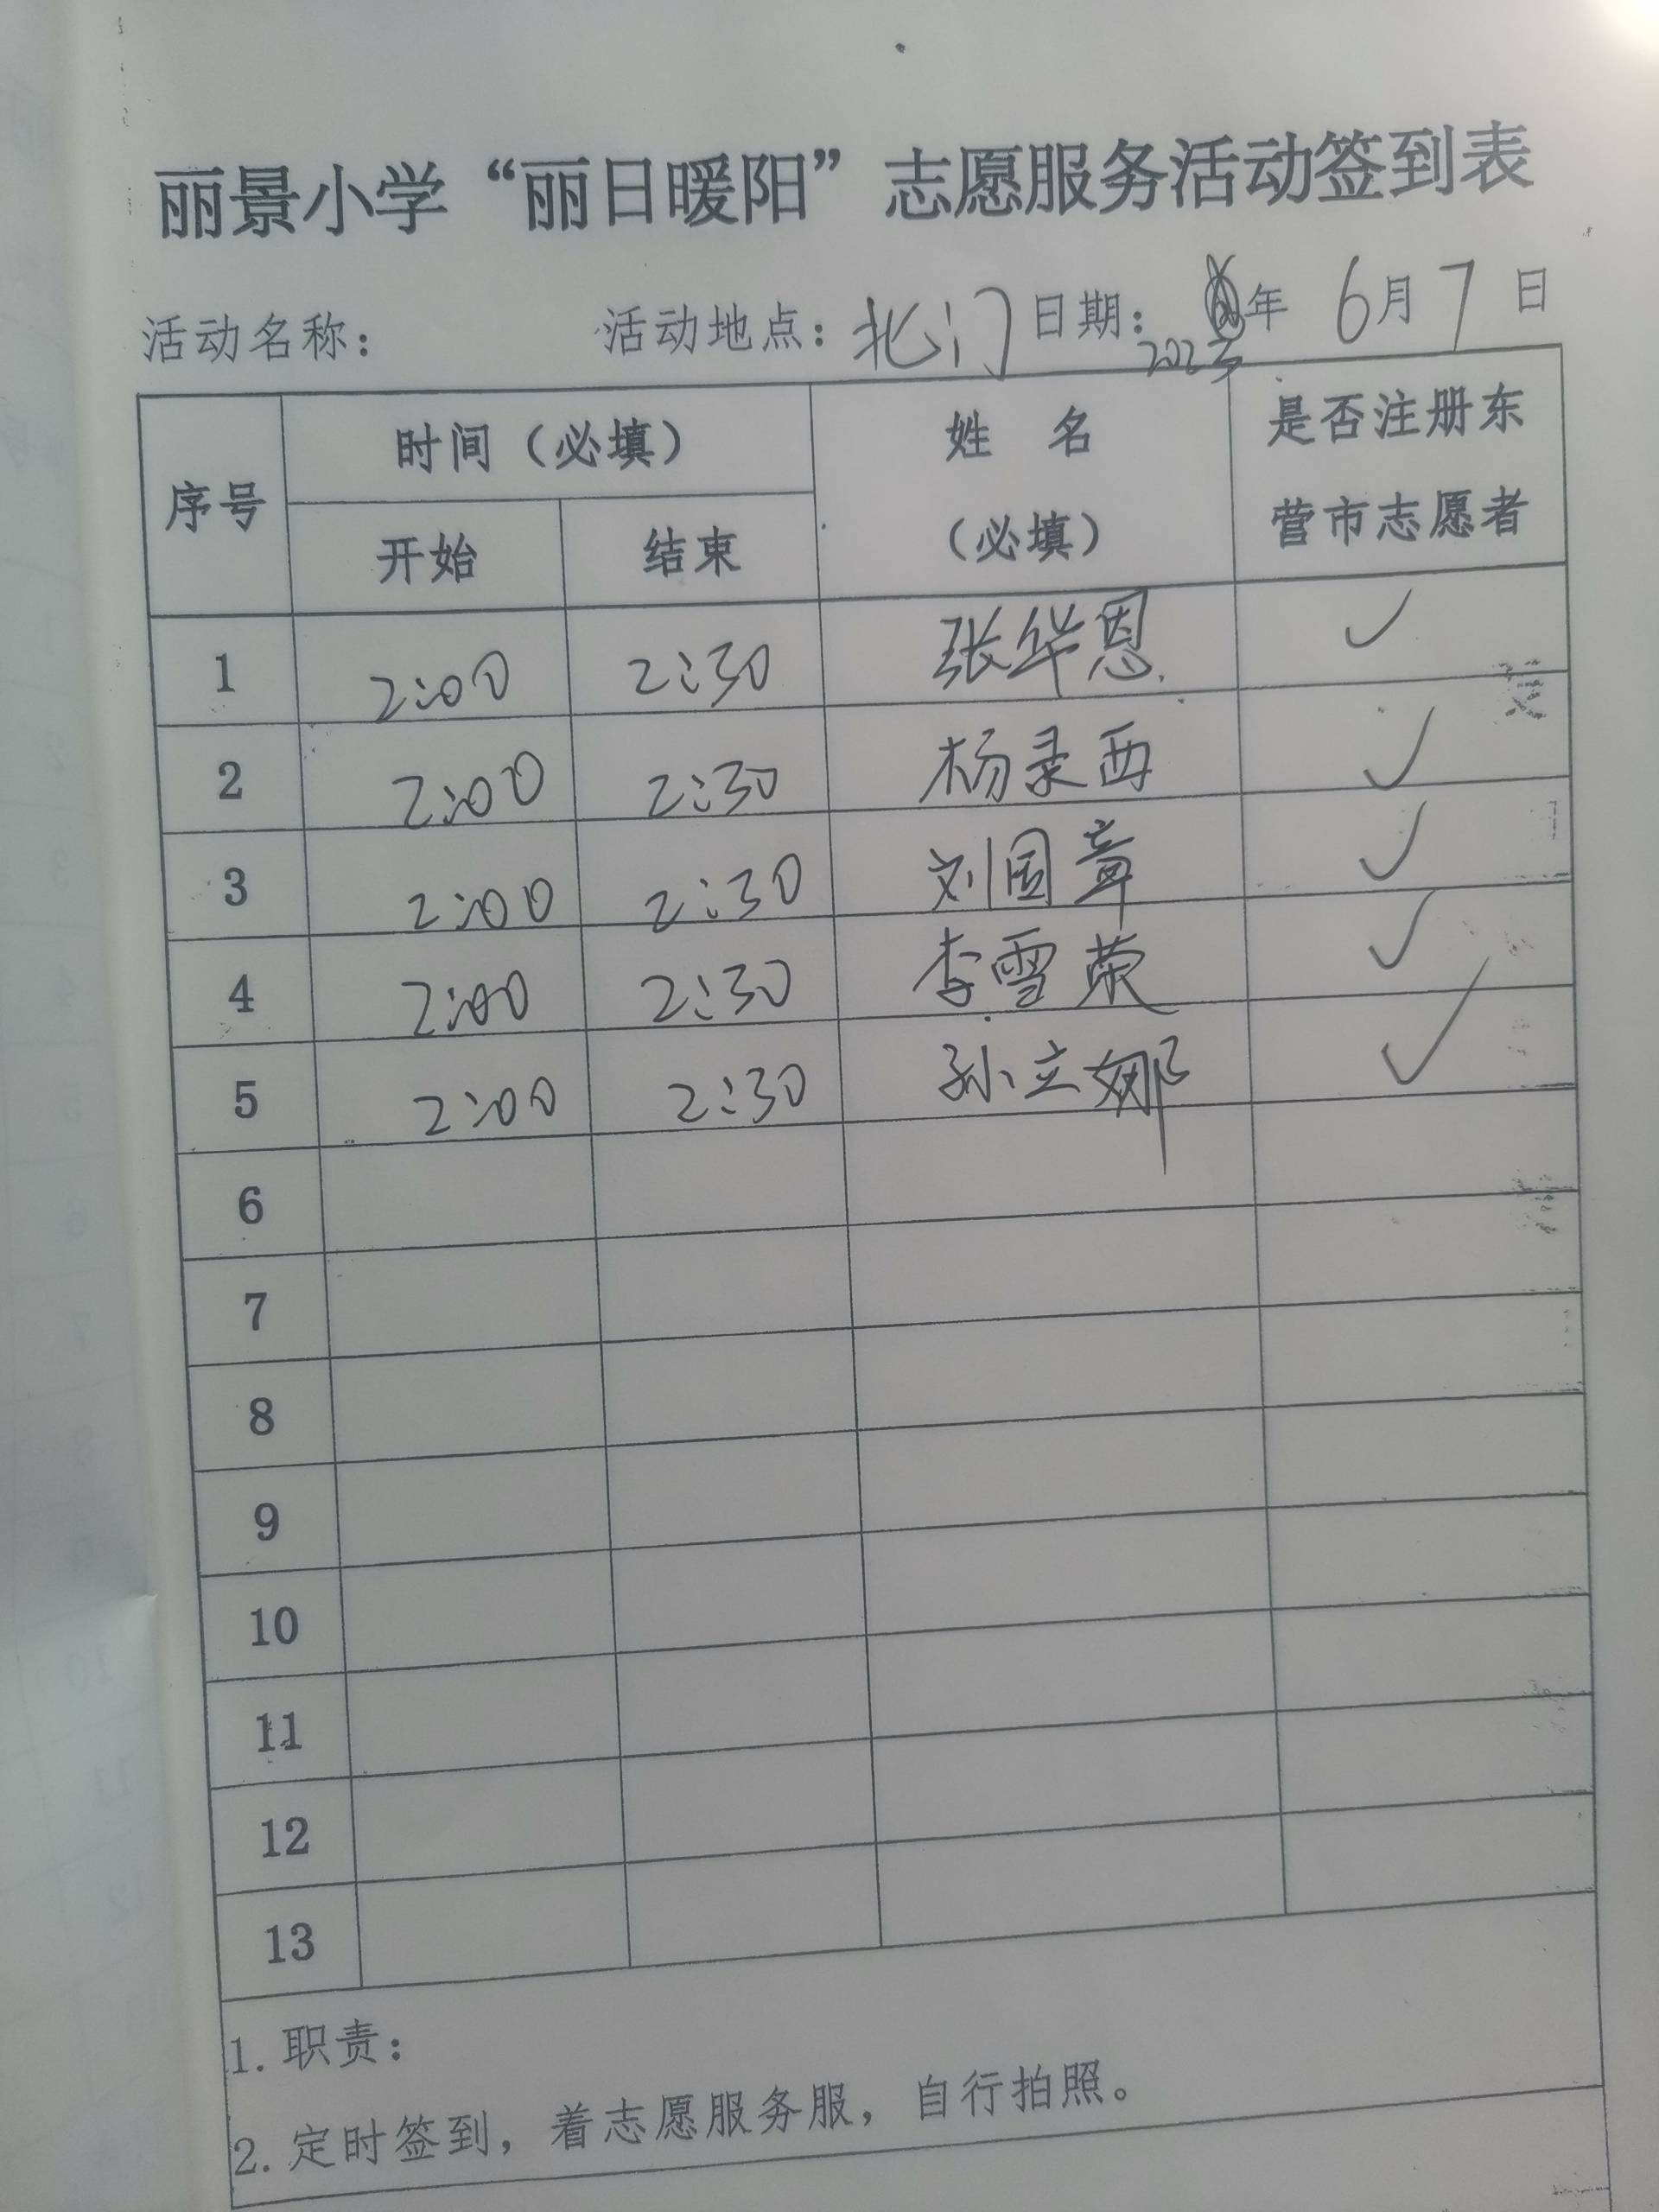 丽景小学“丽日暖阳”志愿服务活动签到表
活动名称： 活动地点：北门 日期：2023年 6月7日
序号 时间（必填） 姓 名（必填） 是否注册东营市志愿者
开始 结束
1 2:00 2:30 张华恩 ✓
2 2:00 2:30 杨录西 ✓
3 2:00 2:30 刘国章 ✓
4 2:00 2:30 李雪荣 ✓
5 2:00 2:30 孙立娜 ✓
6
7
8
9
10
11
12
13
1. 职责：
2. 定时签到，着志愿服务服，自行拍照。